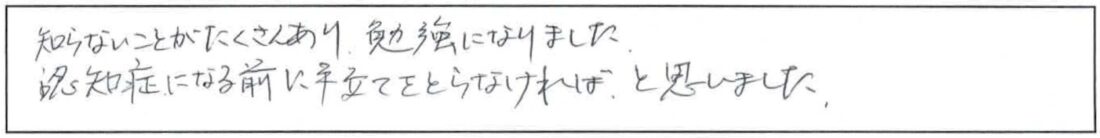 知らないことがたくさんあり、勉強になりました。
認知症になる前に手立てをとらなければ、と思いました。